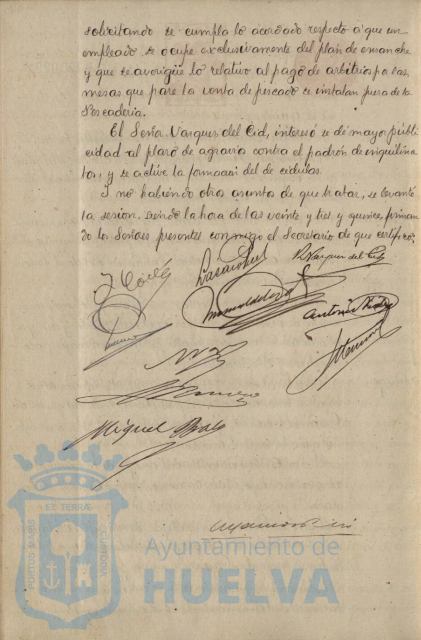 solicitando se cumpla lo acordado respecto a que un
empleado se ocupe exclusivamente del plan de ensanche
y que se averigüe lo relativo al pago de arbitrios por las
mesas que para la venta de pescado se instalan fuera de la
Pescadería.
El Señor Vazquez del Cid, interesó se dé mayor publi
cidad al plazo de agravios contra el padrón de inquilina
tos, y se active la formacion del de cédulas.
Y no habiendo otros asuntos de que tratar, se levantó
la sesión, siendo la hora de las veinte y tres y quince, firman
do los Señores presentes conmigo el Secretario de que certifico.
R. Vazquez del Cid
Antonio
Miguel
PORTUS MARIS
ET TERRÆ
CUSTODIA
Ayuntamiento de
HUELVA